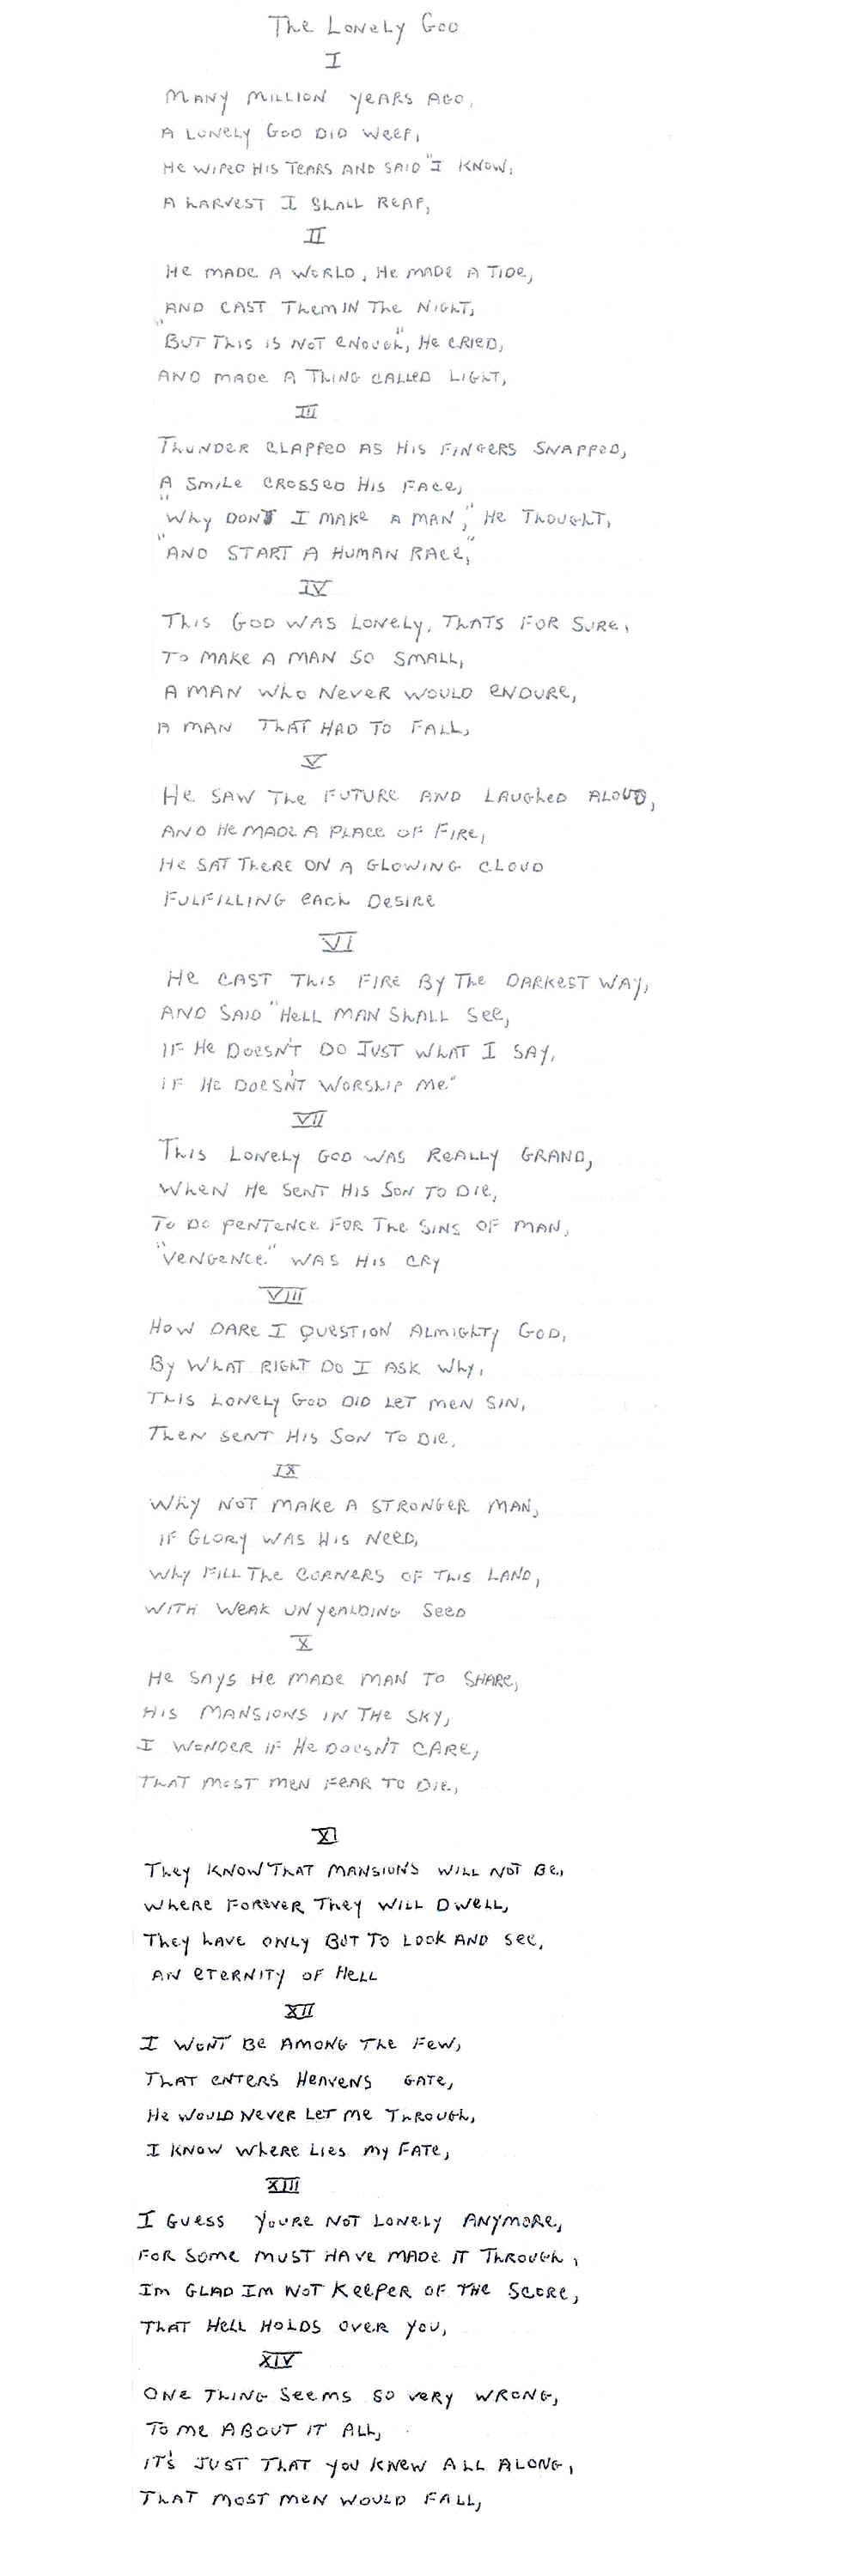 The Lonely God
I
Many million years ago,
A lonely God did weep,
He wiped his tears and said "I know,
A harvest I shall reap,
II
He made a world, He made a tide,
And cast them in the night,
"But this is not enough", He cried,
And made a thing called light,
III
Thunder clapped as His fingers snapped,
A smile crossed His face,
"Why don't I make a man," He thought,
"And start a human race,"
IV
This God was lonely, thats for sure,
To make a man so small,
A man who never would endure,
A man that had to fall,
V
He saw the future and laughed aloud,
And He made a place of fire,
He sat there on a glowing cloud
Fulfilling each desire
VI
He cast this fire by the darkest way,
And said "Hell man shall see,
If He doesn't do just what I say,
If He doesn't worship me"
VII
This lonely God was really grand,
When He sent His Son to die,
To do pentence for the sins of man,
"Vengence" was His cry
VIII
How dare I question almighty God,
By what right do I ask why,
This lonely God did let men sin,
Then sent His Son to die,
IX
Why not make a stronger man,
If glory was His need,
Why fill the corners of this land,
With weak unyealding seed
X
He says He made man to share,
His mansions in the sky,
I wonder if He doesn't care,
That most men fear to die,
XI
They know that mansions will not be,
Where forever they will dwell,
They have only but to look and see,
An eternity of Hell
XII
I won't be among the few,
That enters Heavens gate,
He would never let me through,
I know where lies my fate,
XIII
I guess youre not lonely anymore,
For some must have made it through,
Im glad Im not keeper of the score,
That Hell holds over you,
XIV
One thing seems so very wrong,
To me about it all,
It's just that you knew all along,
That most men would fall,